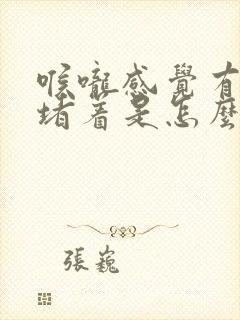 喉嚨感覺有
堵着是怎麼
張巍